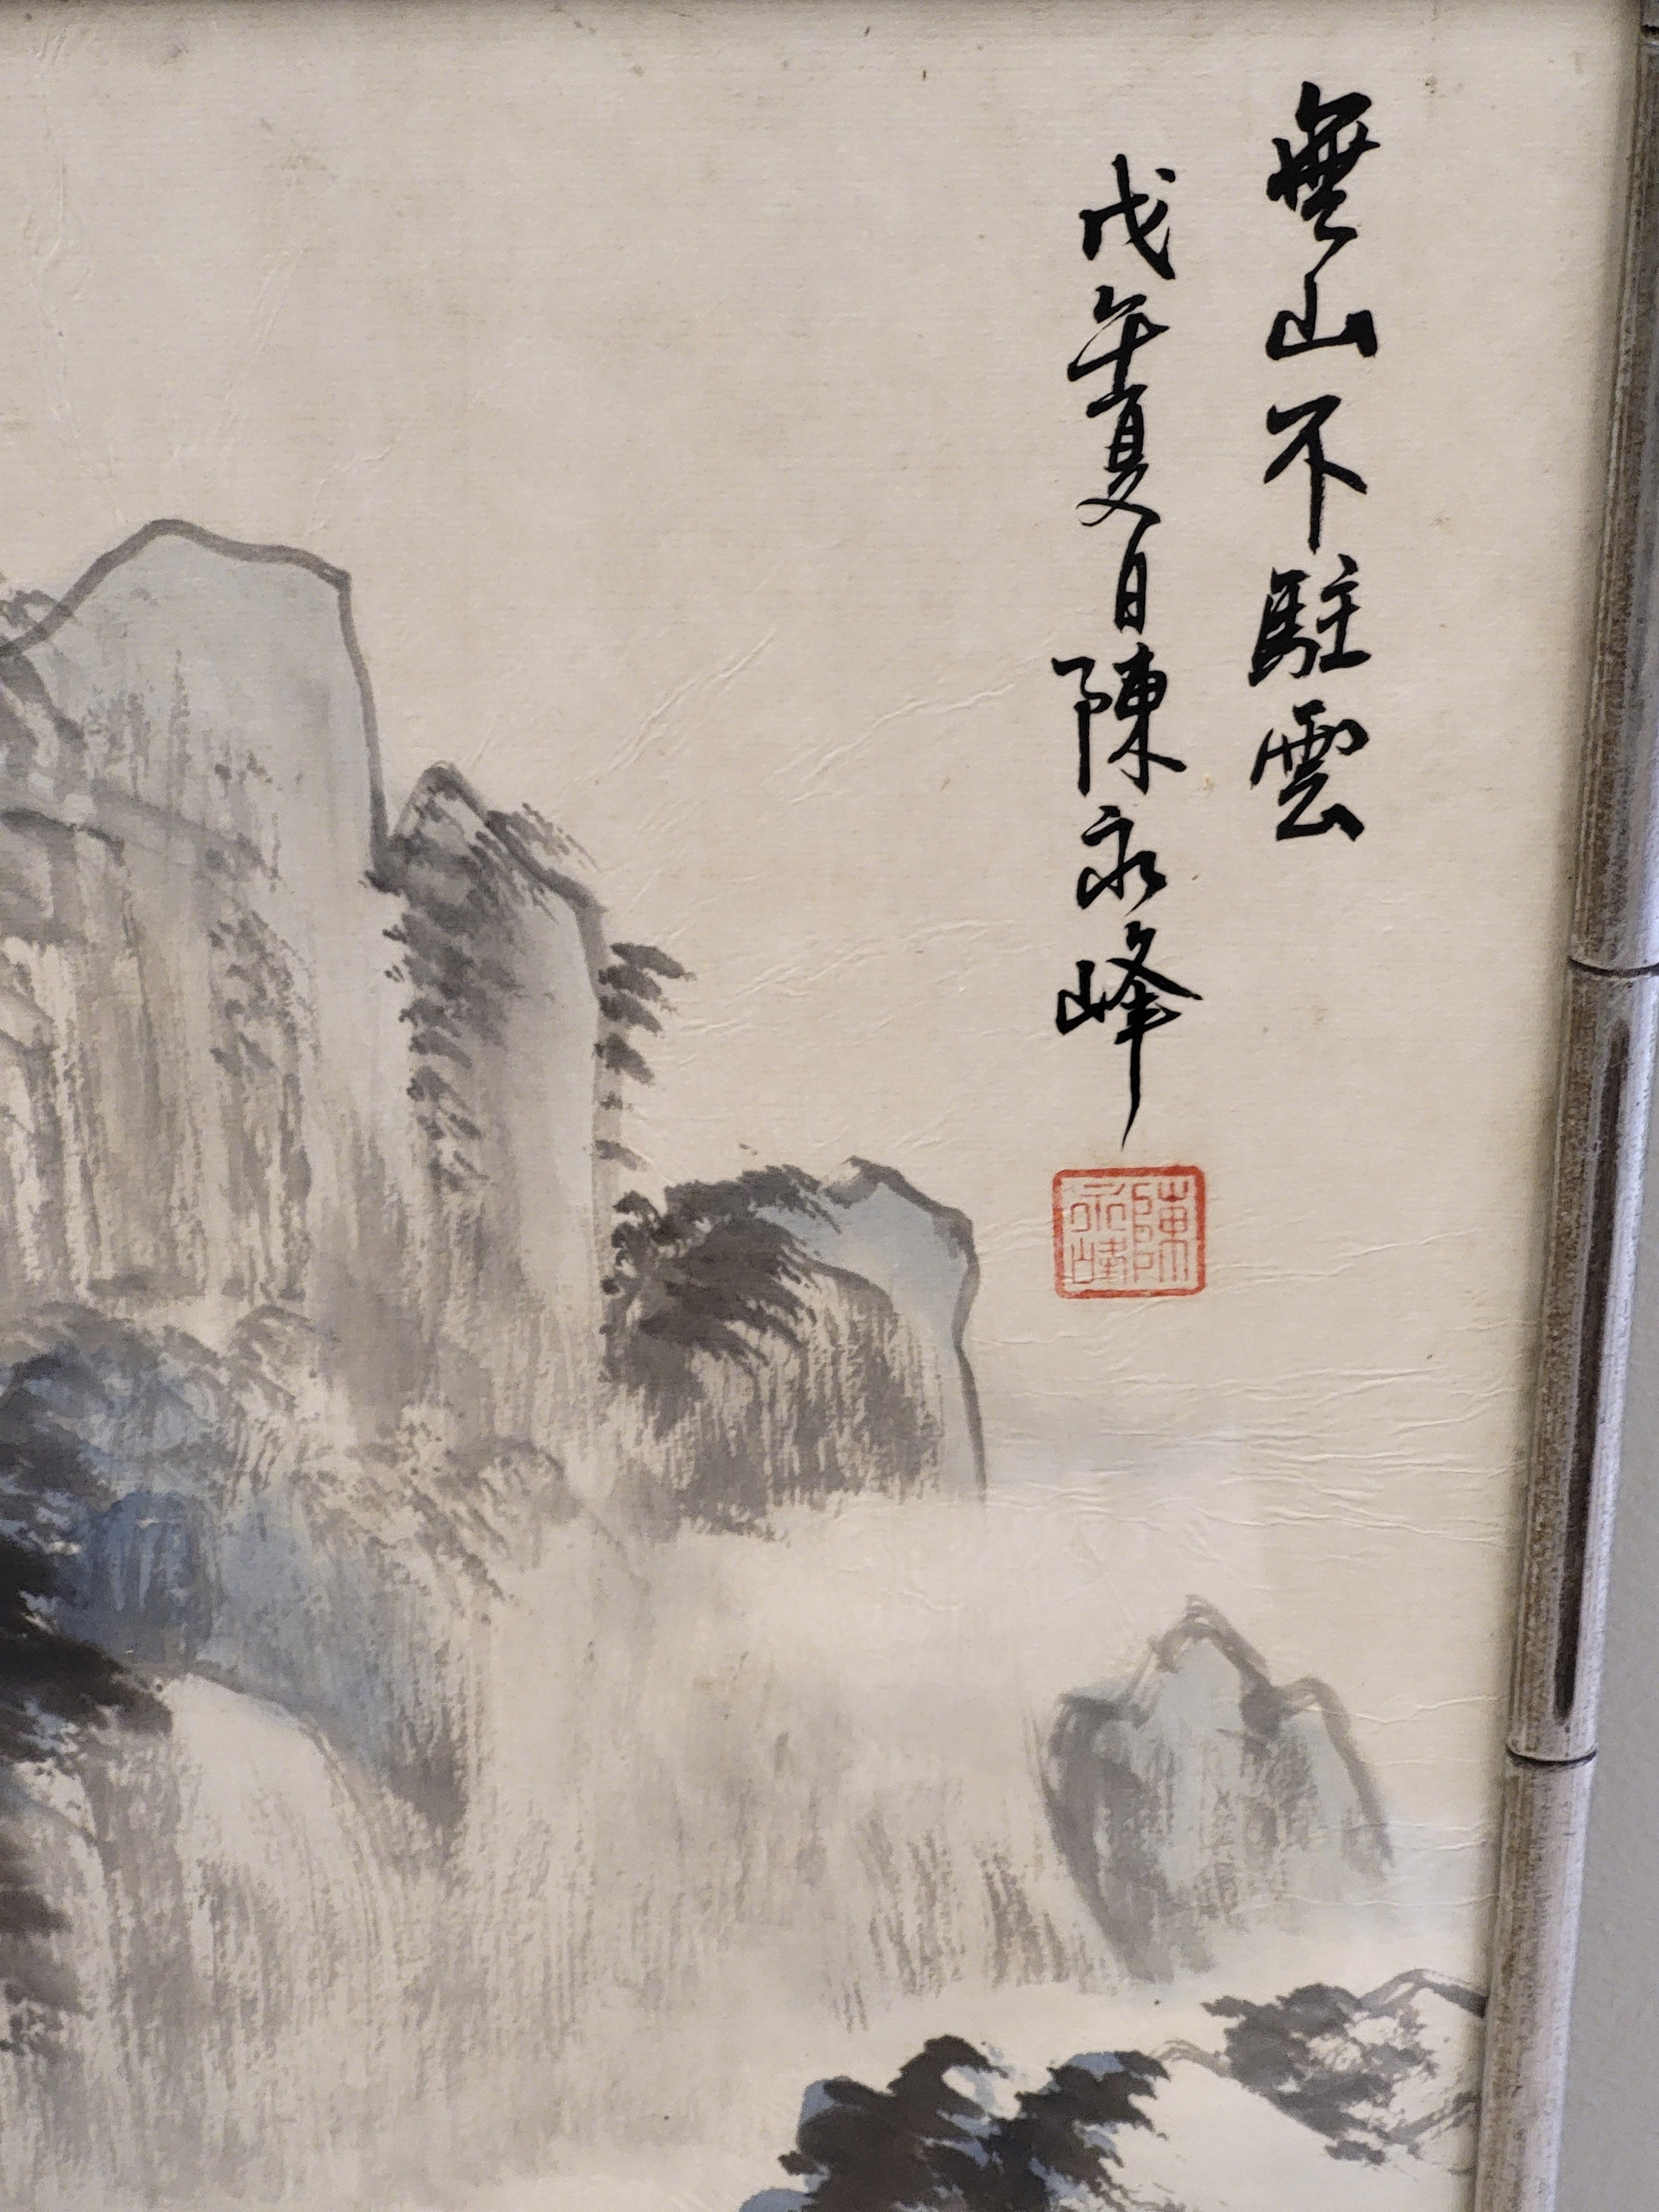 無山不駐雲
戊午夏日陳永峰
陳永峰